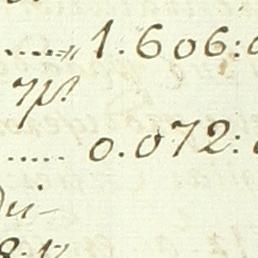 ....." 1.606:
7p?
..... 0.072:
Di-
8: